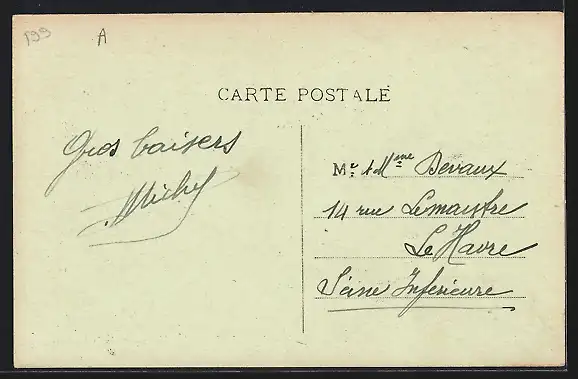 199
A
CARTE POSTALE
Gros baisers
Michel
Mr. & Mme Devaux
14 rue Lemaistre
Le Havre
Seine Inférieure